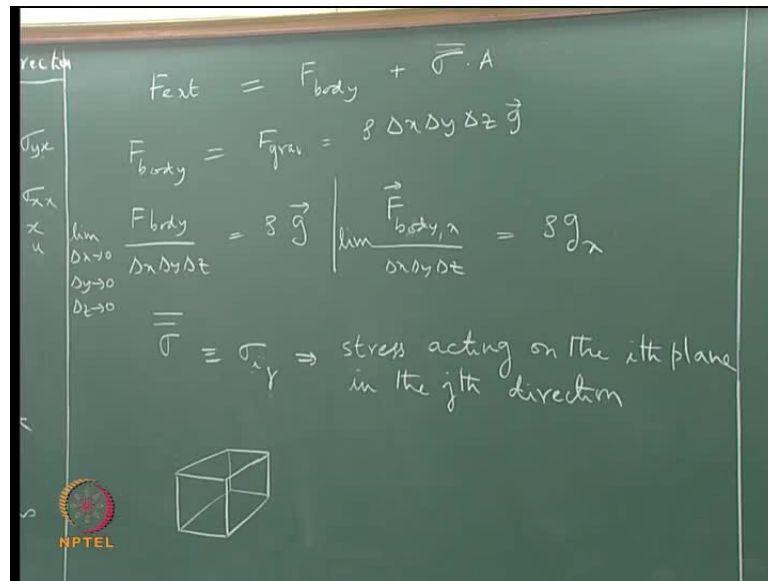 F_ext = F_body + σ̿ · A
σ_yx
F_body = F_grav = ρ Δx Δy Δz g⃗
σ_xx
x
u
lim Δx→0 Δy→0 Δz→0 F_body / ΔxΔyΔz = ρ g⃗ | lim F⃗_body,x / ΔxΔyΔz = ρ g_x
σ̿ ≡ σ_ij ⇒ stress acting on the ith plane
in the jth direction
NPTEL